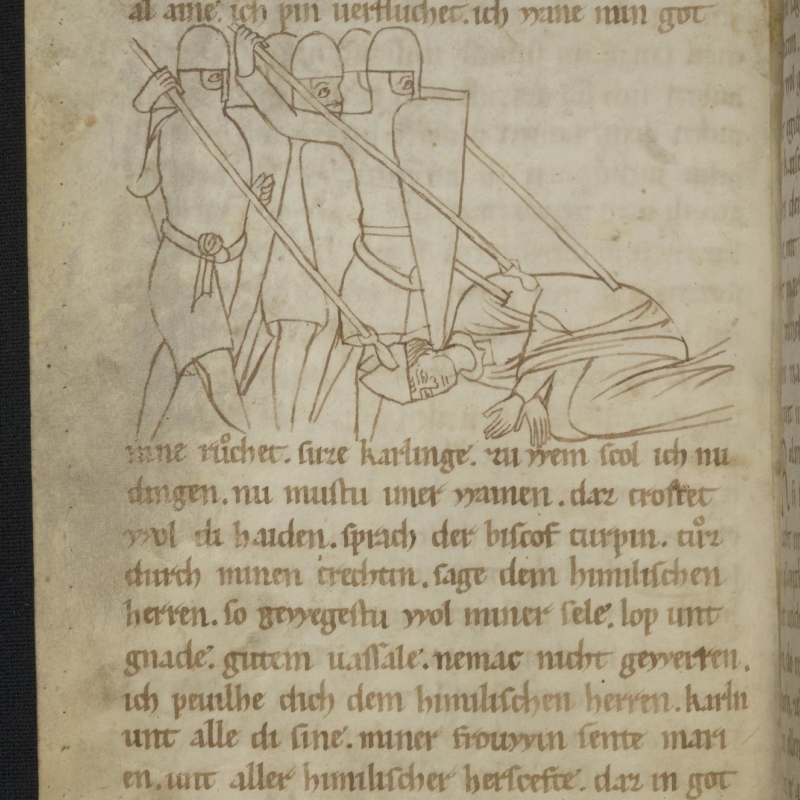 al aine. ich pin uerfluchet. ich wane mın got
mine růchet. suze karlinge. zu wem scol ich nu
dingen. nu mustu uner wainen. daz trostet
wol di haiden. sprach der biscof turpin. tůz
durch minen trechtin. sage dem himilischen
herren. so gewegestu wol miner sele. lop unt
gnade. gutem uassale. nemac nicht gewerren.
ich peuilhe dich dem himilischen herren. karln
unt alle di sine. miner frouwin sente mari
en. unt aller himilischer herscefte. daz in got